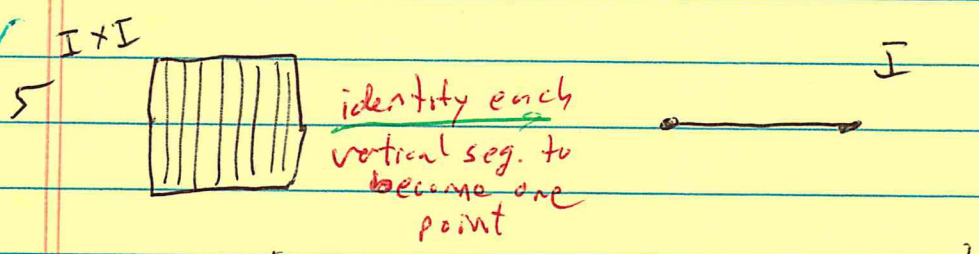 I × I
I
5
identity each
vertical seg. to
become one
point